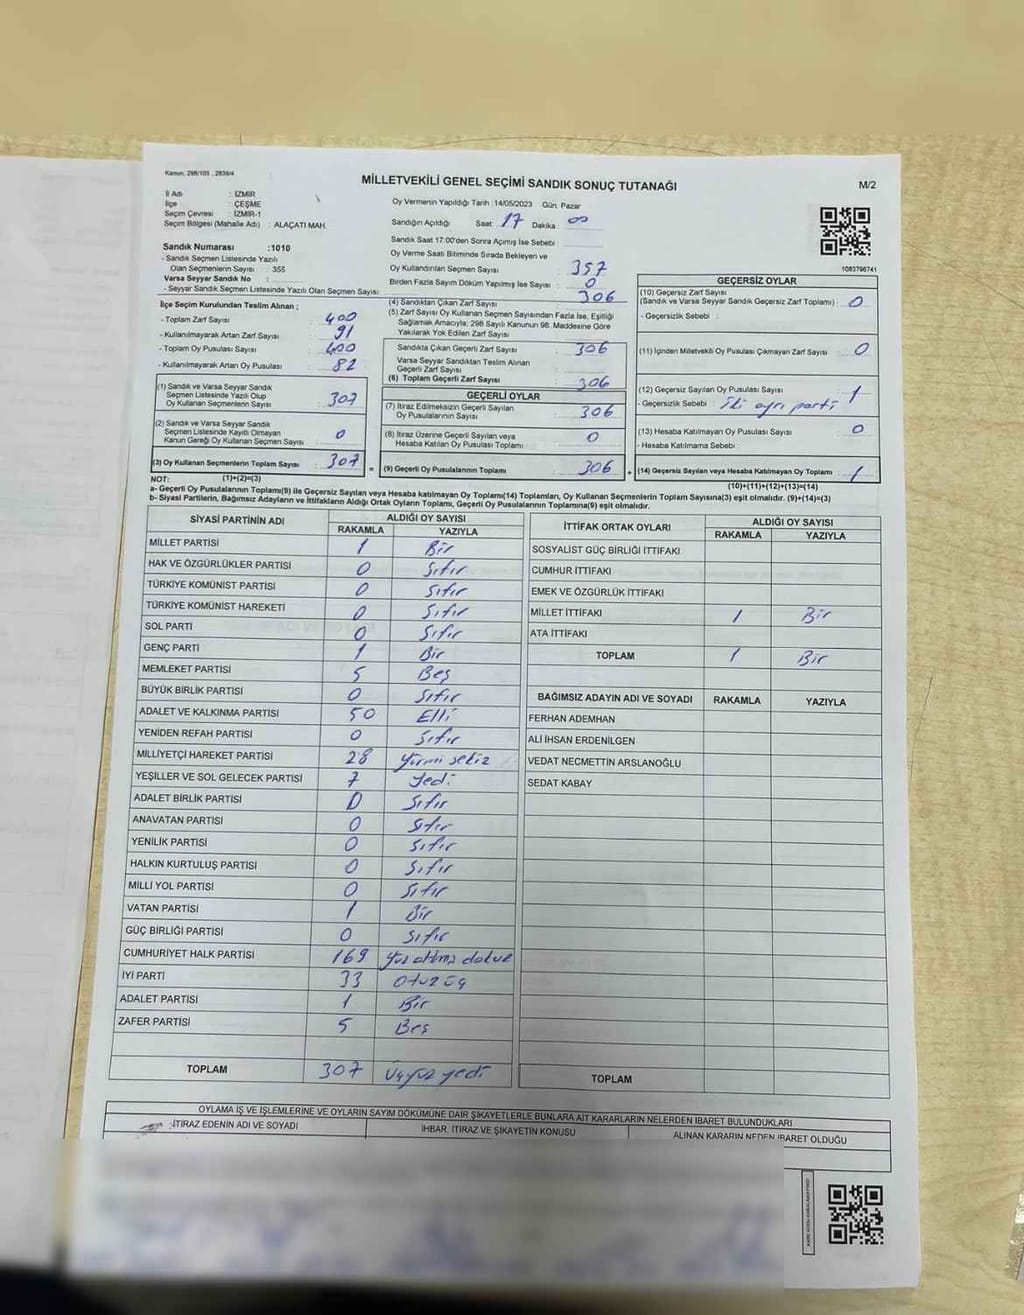 Kanun: 298/105 , 2839/4
MİLLETVEKİLİ GENEL SEÇİMİ SANDIK SONUÇ TUTANAĞI
M/2
İl Adı : İZMİR
İlçe : ÇEŞME
Seçim Çevresi : İZMİR-1
Seçim Bölgesi (Mahalle Adı) : ALAÇATI MAH.
Sandık Numarası :1010
- Sandık Seçmen Listesinde Yazılı
Olan Seçmenlerin Sayısı : 355
Varsa Seyyar Sandık No :
- Seyyar Sandık Seçmen Listesinde Yazılı Olan Seçmen Sayısı:
İlçe Seçim Kurulundan Teslim Alınan ;
- Toplam Zarf Sayısı : 400
- Kullanılmayarak Artan Zarf Sayısı : 91
- Toplam Oy Pusulası Sayısı : 400
- Kullanılmayarak Artan Oy Pusulası : 82
(1) Sandık ve Varsa Seyyar Sandık
Seçmen Listesinde Yazılı Olup
Oy Kullanan Seçmenlerin Sayısı : 307
(2) Sandık ve Varsa Seyyar Sandık
Seçmen Listesinde Kayıtlı Olmayan
Kanun Gereği Oy Kullanan Seçmen Sayısı : 0
(3) Oy Kullanan Seçmenlerin Toplam Sayısı : 307
(1)+(2)=(3)
Oy Vermenin Yapıldığı Tarih :14/05/2023 Gün: Pazar
Sandığın Açıldığı Saat: 17 Dakika : 00
Sandık Saat 17:00'den Sonra Açımış İse Sebebi :
Oy Verme Saati Bitiminde Sırada Bekleyen ve
Oy Kullandırılan Seçmen Sayısı : 357
Birden Fazla Sayım Döküm Yapılmış İse Sayısı : 0
(4) Sandıktan Çıkan Zarf Sayısı : 306
(5) Zarf Sayısı Oy Kullanan Seçmen Sayısından Fazla İse, Eşitliği
Sağlamak Amacıyla; 298 Sayılı Kanunun 98. Maddesine Göre
Yakılarak Yok Edilen Zarf Sayısı :
Sandıkta Çıkan Geçerli Zarf Sayısı : 306
Varsa Seyyar Sandıktan Teslim Alınan
Geçerli Zarf Sayısı :
(6) Toplam Geçerli Zarf Sayısı : 306
GEÇERLİ OYLAR
(7) İtiraz Edilmeksizin Geçerli Sayılan
Oy Pusulalarının Sayısı : 306
(8) İtiraz Üzerine Geçerli Sayılan veya
Hesaba Katılan Oy Pusulası Toplamı : 0
= (9) Geçerli Oy Pusulalarının Toplamı : 306
1083796741
GEÇERSİZ OYLAR
(10) Geçersiz Zarf Sayısı
(Sandık ve Varsa Seyyar Sandık Geçersiz Zarf Toplamı) : 0
- Geçersizlik Sebebi :
(11) İçinden Milletvekili Oy Pusulası Çıkmayan Zarf Sayısı : 0
(12) Geçersiz Sayılan Oy Pusulası Sayısı : 1
- Geçersizlik Sebebi : İki ayrı parti
(13) Hesaba Katılmayan Oy Pusulası Sayısı : 0
- Hesaba Katılmama Sebebi :
+ (14) Geçersiz Sayılan veya Hesaba Katılmayan Oy Toplamı : 1
(10)+(11)+(12)+(13)=(14)
NOT:
a- Geçerli Oy Pusulalarının Toplamı(9) ile Geçersiz Sayılan veya Hesaba katılmayan Oy Toplamı(14) Toplamları, Oy Kullanan Seçmenlerin Toplam Sayısına(3) eşit olmalıdır. (9)+(14)=(3)
b- Siyasi Partilerin, Bağımsız Adayların ve İttifakların Aldığı Ortak Oyların Toplamı, Geçerli Oy Pusulalarının Toplamına(9) eşit olmalıdır.
SİYASİ PARTİNİN ADI ALDIĞI OY SAYISI
RAKAMLA YAZIYLA
MİLLET PARTİSİ 1 Bir
HAK VE ÖZGÜRLÜKLER PARTİSİ 0 Sıfır
TÜRKİYE KOMÜNİST PARTİSİ 0 Sıfır
TÜRKİYE KOMÜNİST HAREKETİ 0 Sıfır
SOL PARTİ 0 Sıfır
GENÇ PARTİ 1 Bir
MEMLEKET PARTİSİ 5 Beş
BÜYÜK BİRLİK PARTİSİ 0 Sıfır
ADALET VE KALKINMA PARTİSİ 50 Elli
YENİDEN REFAH PARTİSİ 0 Sıfır
MİLLİYETÇİ HAREKET PARTİSİ 28 Yirmi sekiz
YEŞİLLER VE SOL GELECEK PARTİSİ 7 Yedi
ADALET BİRLİK PARTİSİ 0 Sıfır
ANAVATAN PARTİSİ 0 Sıfır
YENİLİK PARTİSİ 0 Sıfır
HALKIN KURTULUŞ PARTİSİ 0 Sıfır
MİLLİ YOL PARTİSİ 0 Sıfır
VATAN PARTİSİ 1 Bir
GÜÇ BİRLİĞİ PARTİSİ 0 Sıfır
CUMHURİYET HALK PARTİSİ 169 Yüz altmış dokuz
İYİ PARTİ 33 Otuz üç
ADALET PARTİSİ 1 Bir
ZAFER PARTİSİ 5 Beş
TOPLAM 307 Üçyüz yedi
İTTİFAK ORTAK OYLARI ALDIĞI OY SAYISI
RAKAMLA YAZIYLA
SOSYALİST GÜÇ BİRLİĞİ İTTİFAKI
CUMHUR İTTİFAKI
EMEK VE ÖZGÜRLÜK İTTİFAKI
MİLLET İTTİFAKI 1 Bir
ATA İTTİFAKI
TOPLAM 1 Bir
BAĞIMSIZ ADAYIN ADI VE SOYADI RAKAMLA YAZIYLA
FERHAN ADEMHAN
ALİ İHSAN ERDENİLGEN
VEDAT NECMETTİN ARSLANOĞLU
SEDAT KABAY
TOPLAM
OYLAMA İŞ VE İŞLEMLERİNE VE OYLARIN SAYIM DÖKÜMÜNE DAİR ŞİKAYETLERLE BUNLARA AİT KARARLARIN NELERDEN İBARET BULUNDUKLARI
İTİRAZ EDENİN ADI VE SOYADI İHBAR, İTİRAZ VE ŞİKAYETİN KONUSU ALINAN KARARIN NEDEN İBARET OLDUĞU